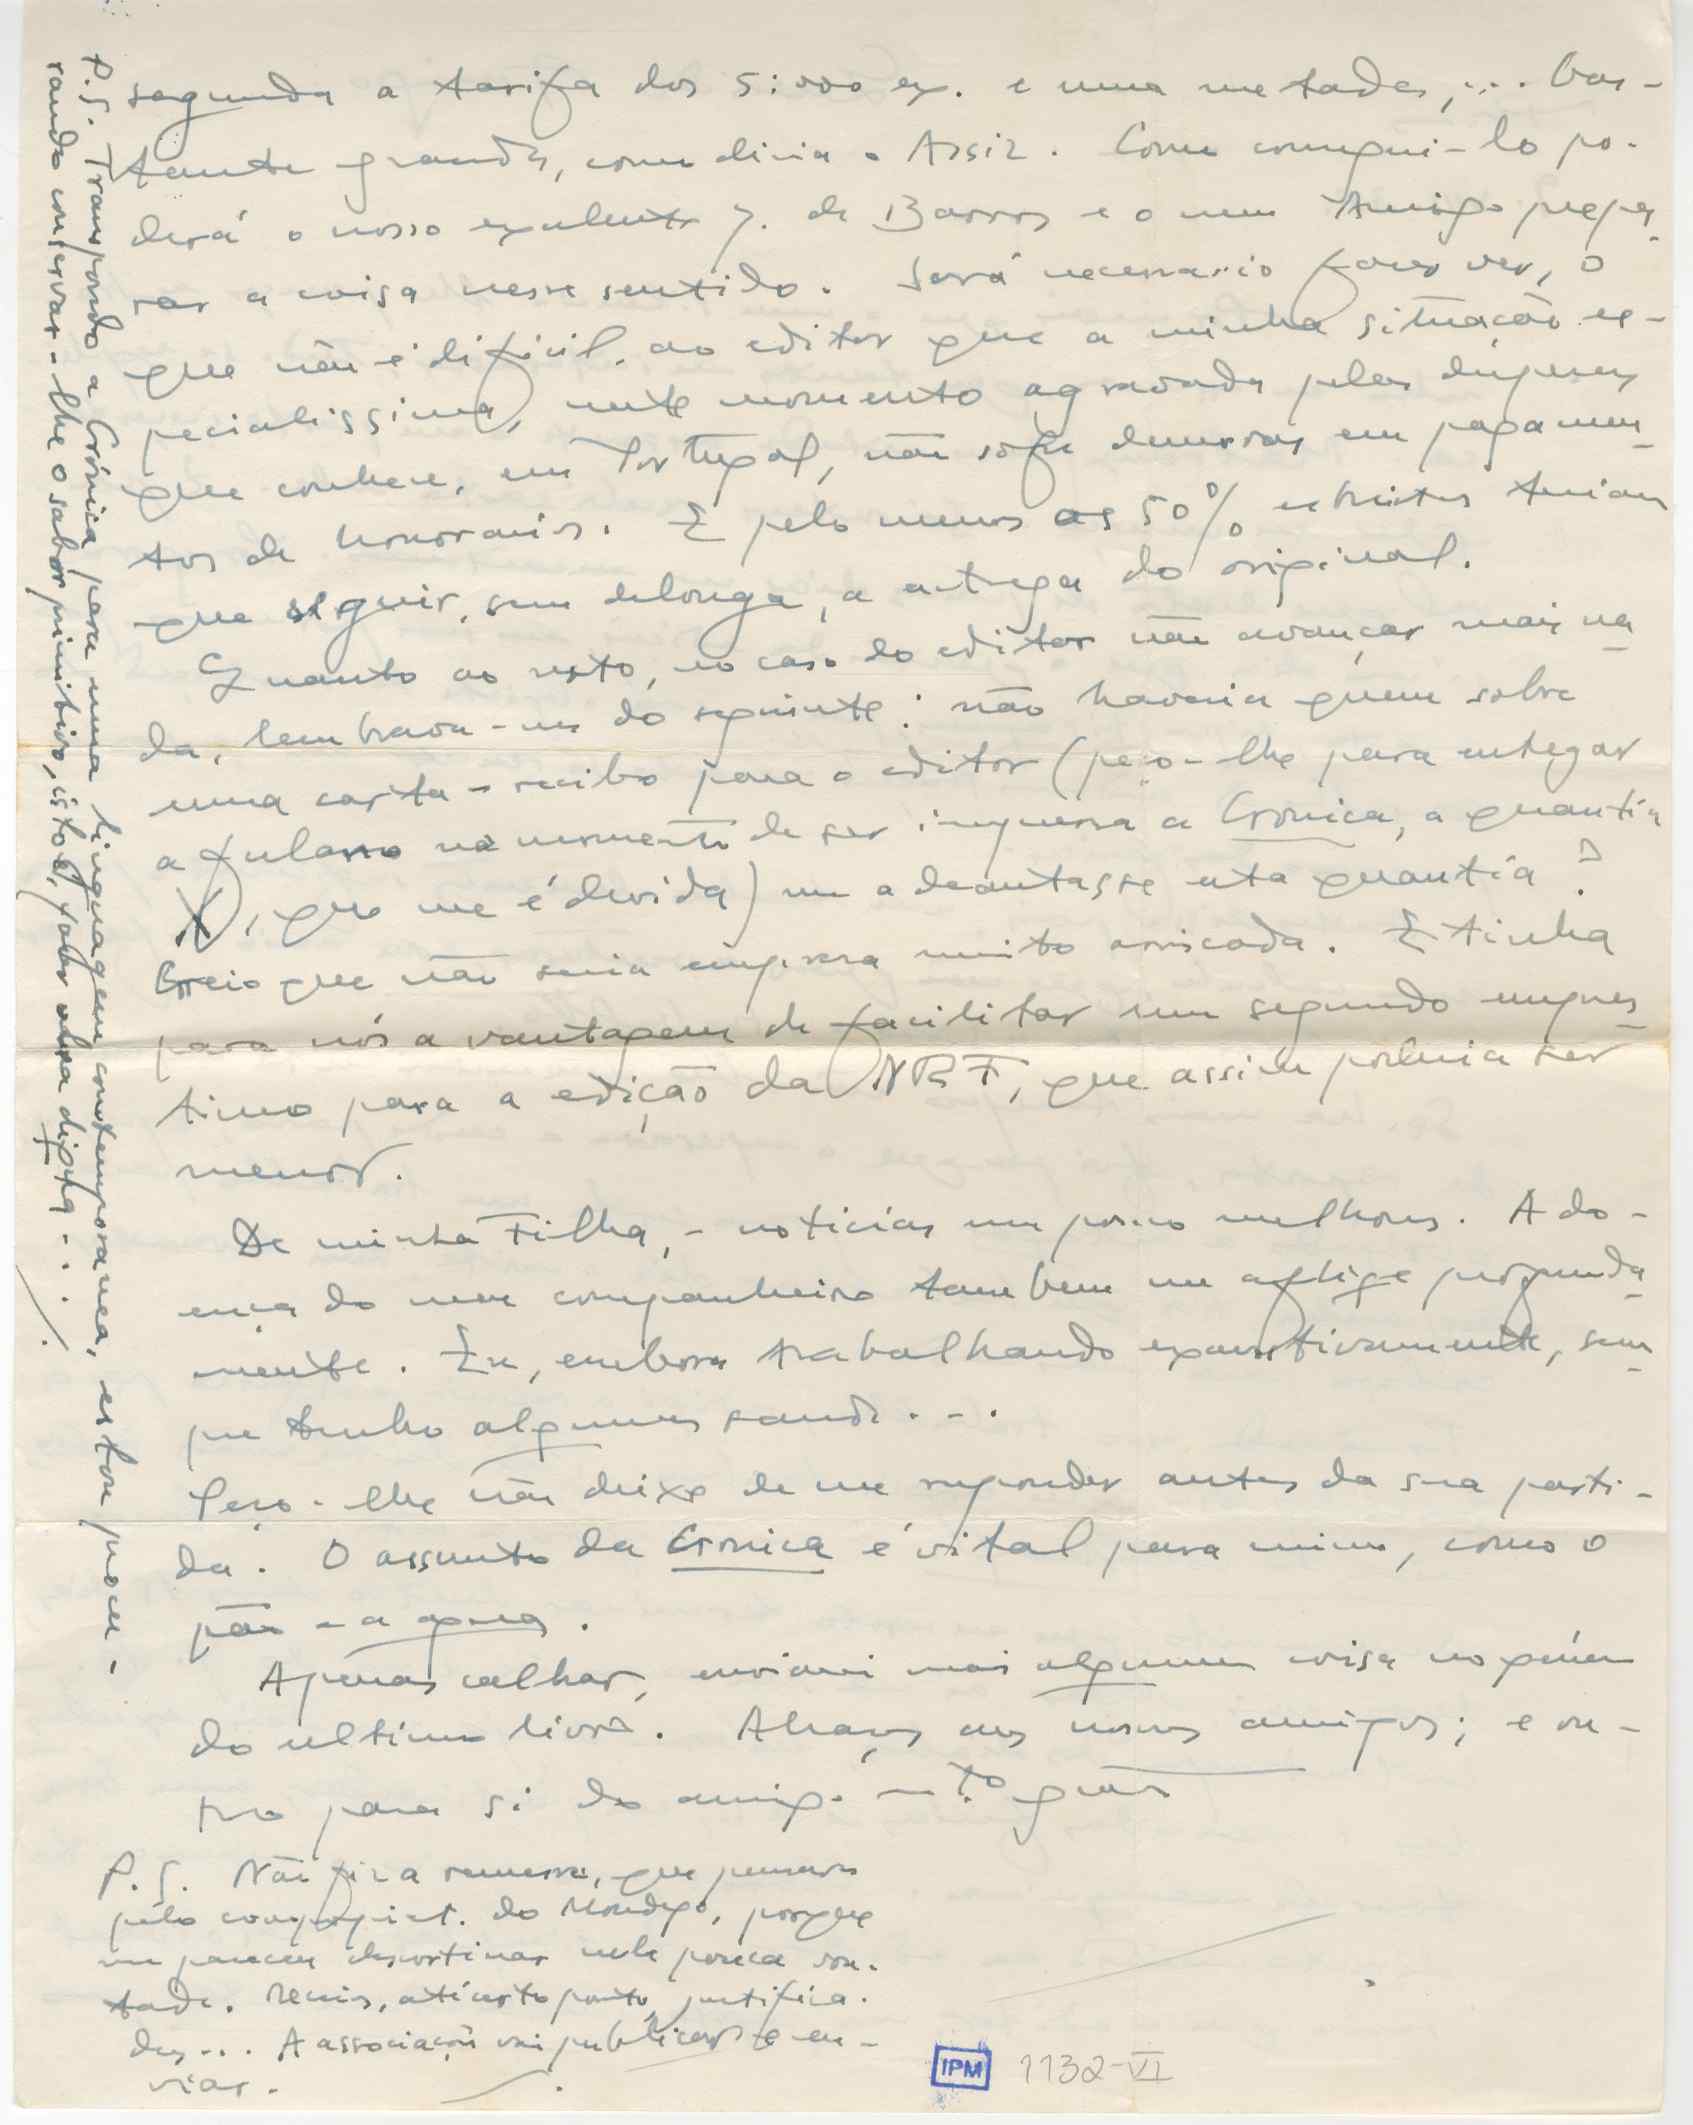 segunda a tarifa dos 5:000 ex. e uma metades,... bas-
tante grandes, como dizia o Assiz. Como consegui-lo po-
derá o nosso excelente J. de Barros e o meu Amigo prepa-
rar a coisa nesse sentido. Será necessario fazer ver, o
que não é dificil, ao editor que a minha situação es-
pecialissima, neste momento agravada pelas despesas
que conhece, em Portugal, não sofre demoras em pagamen-
tos de honorarios. E pelo menos as 50% restantes teriam
que seguir, sem delonga, a entrega do original.
Quanto ao resto, no caso do editor não avançar mais na-
da, lembrava-me do seguinte: não haveria quem sobre
uma carta-recibo para o editor (peço-lhe para entregar
a fulano no momento de ser impressa a Cronica, a quantia
X, que me é devida) me adeantasse esta quantia?
Creio que não seria empresa muito arriscada. E tinha
para nós a vantagem de facilitar um segundo empres-
timo para a edição da NRF, que assim poderia ser
menor.
De minha Filha, - noticias um pouco melhores. A do-
ença do meu companheiro tambem me aflige profunda-
mente. Eu, embora trabalhando exaustivamente, sem-
pre tenho alguma saude...
Peço-lhe não deixe de me responder antes da sua parti-
da. O assunto da Cronica é vital para mim, como o
pão e a agua.
Apenas calhar, enviarei mais alguma coisa no género
do ultimo livro. Abraços aos nossos amigos; e ou-
tro para si do amigo mto grato
P.S. Não fiz a remessa, que pensava
pélo do Mondego, porque
me pareceu descortinar nele pouca von-
tade. Receios, até certo ponto, justifica-
dos... A associação vai publicar e en-
viar.
P.S. Transpondo a Crónica para uma linguagem contemporanea, estou procu-
rando conservar-lhe o sabor primitivo, isto é, fazer obra digna...
IPM 1132-VI